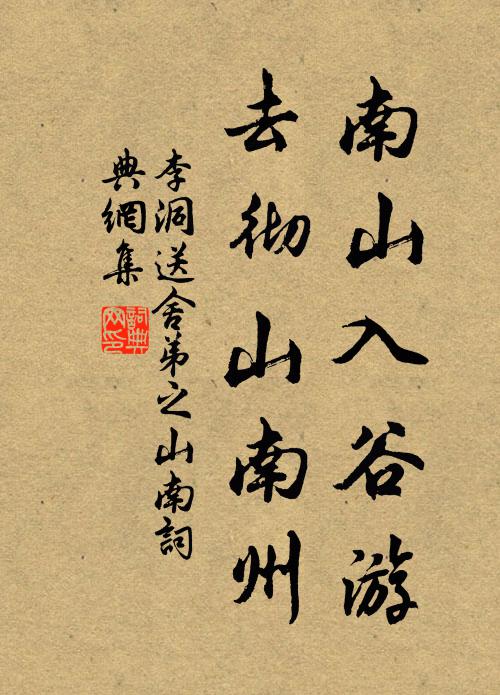 南山入谷游
去彻山南州
李洞送舍弟之山南詞
典網集
詞典网印